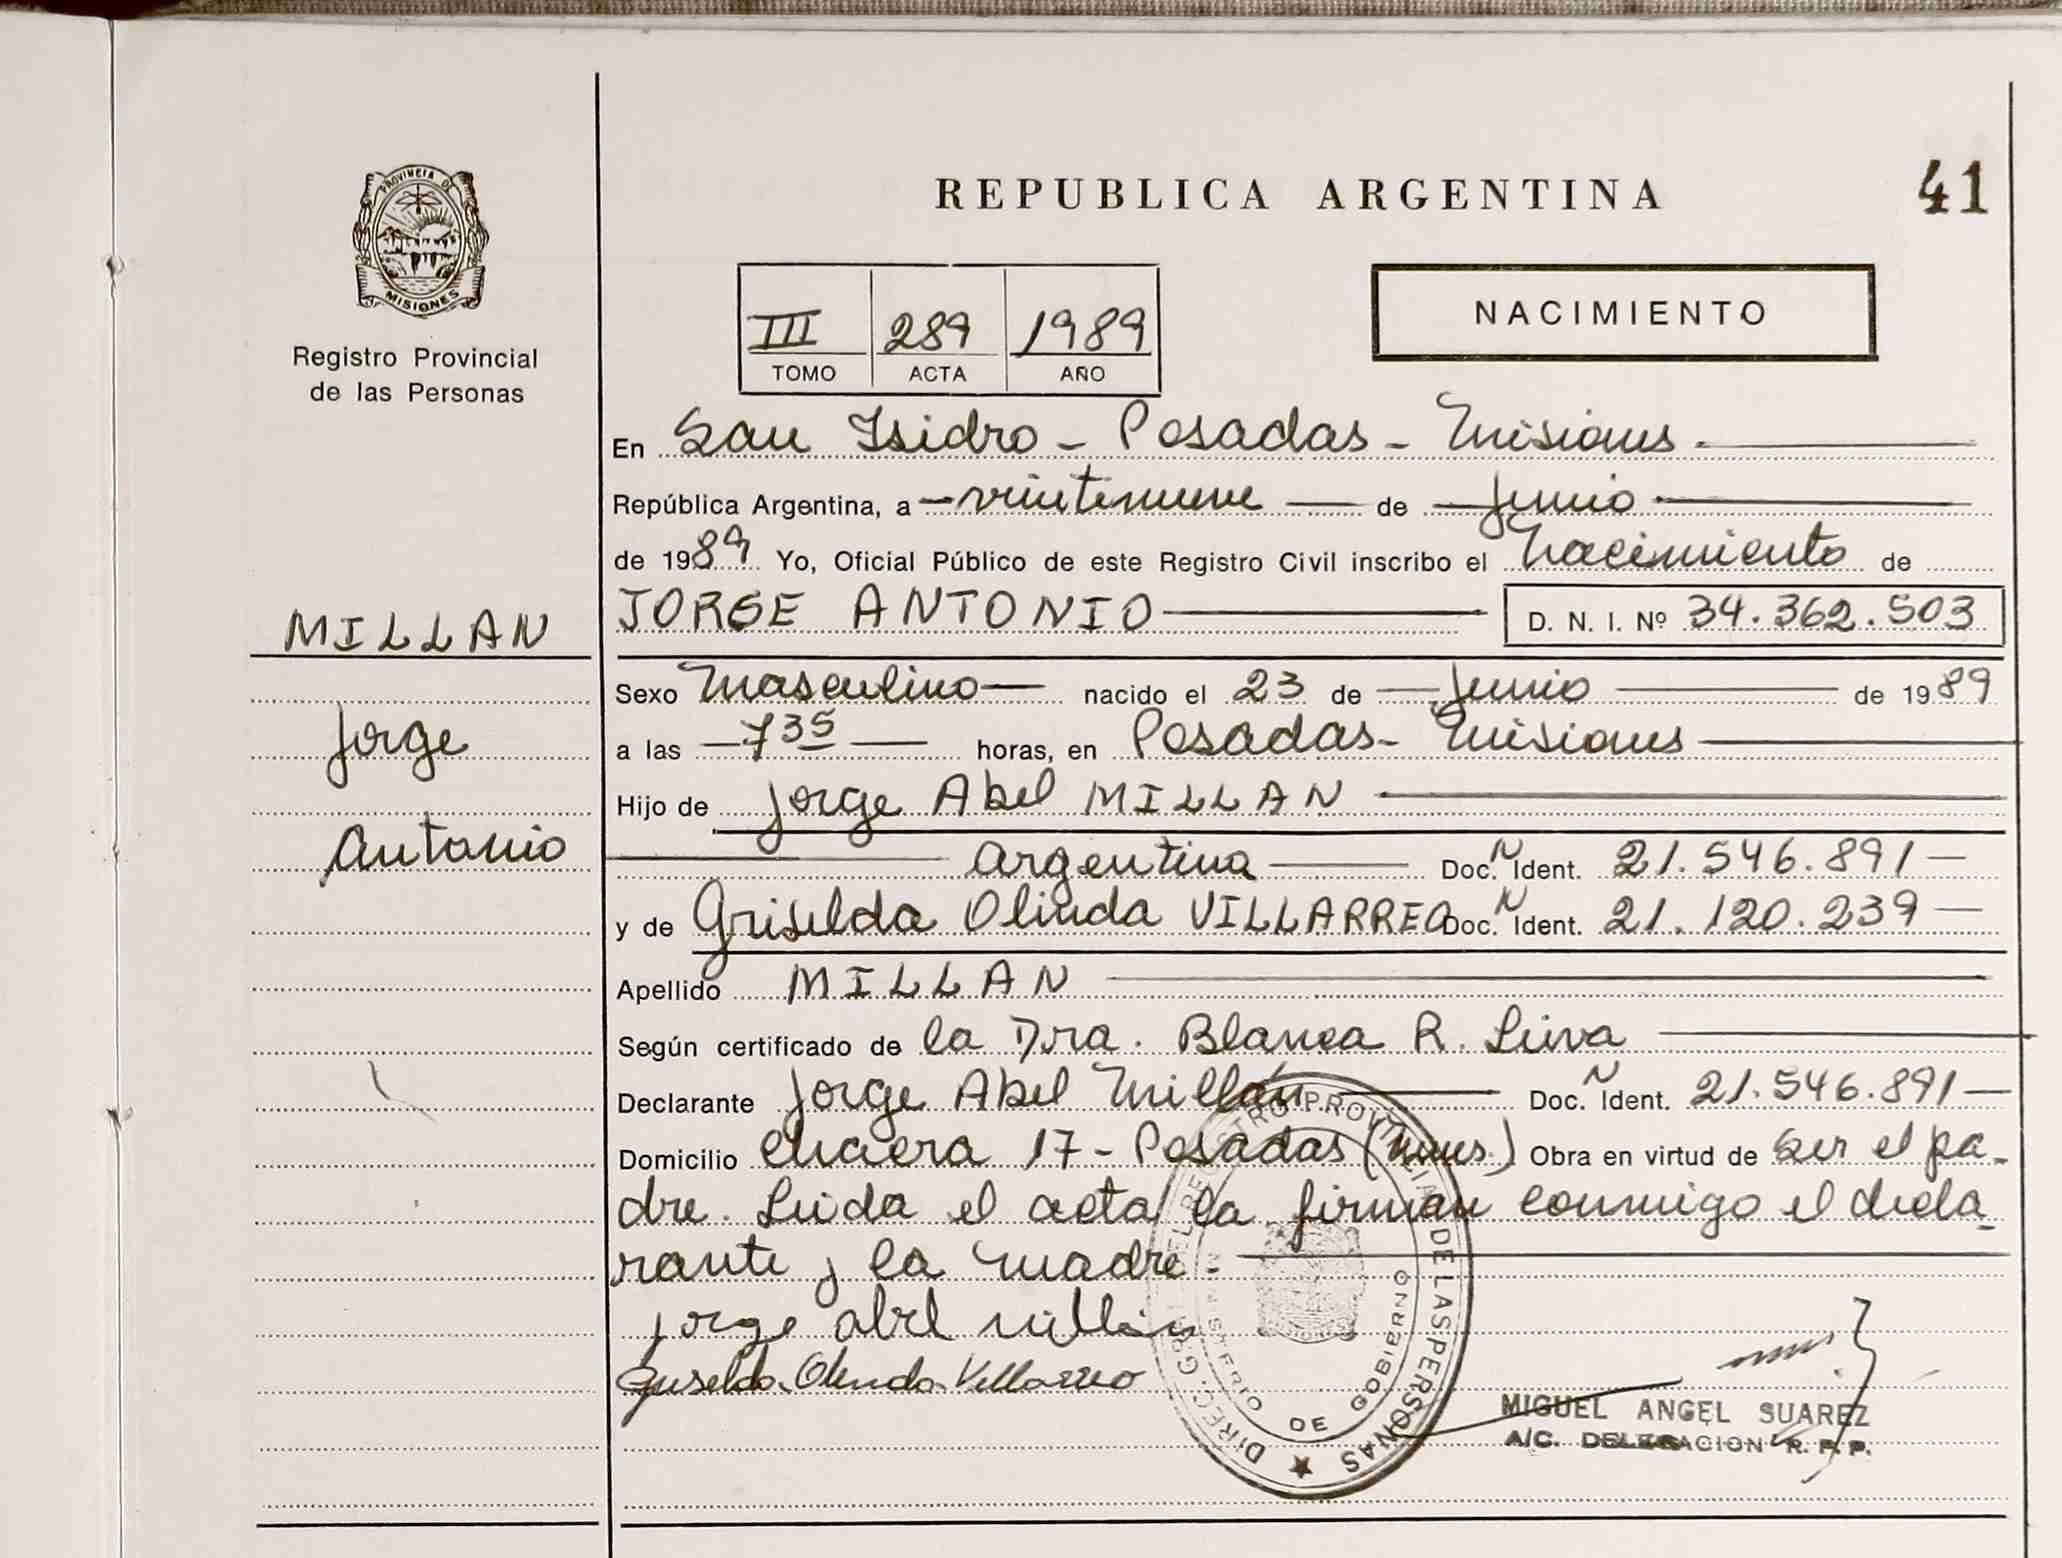 REPUBLICA ARGENTINA
41
PROVINCIA DE
MISIONES
Registro Provincial
de las Personas
III 289 1989
TOMO ACTA AÑO
NACIMIENTO
En San Isidro - Posadas - Misiones -
República Argentina, a - veintinueve - de - junio -
de 1989 Yo, Oficial Público de este Registro Civil inscribo el Nacimiento de
MILLAN
JORGE ANTONIO D. N. I. Nº 34.362.503
Sexo Masculino - nacido el 23 de - junio - de 1989
Jorge
a las - 7 35 - horas, en Posadas - Misiones
Hijo de Jorge Abel MILLAN
Antonio
Argentina Doc. N Ident. 21.546.891 -
y de Griselda Olinda VILLARREO Doc. N Ident. 21.120.239 -
Apellido MILLAN
Según certificado de la Dra. Blanca R.
Declarante Jorge Abel Millán Doc. N Ident. 21.546.891 -
Domicilio Chacra 17 - Posadas (Mnes.) Obra en virtud de ser el pa-
dre. Leída el acta la firman conmigo el decla-
rante y la madre. -
jorge abel millán
Griselda Olinda Villarreo
DIREC. GRAL. DEL REGISTRO PROVINCIAL DE LAS PERSONAS
MINISTERIO DE GOBIERNO
MIGUEL ANGEL SUAREZ
A/C. DELEGACION R. P. P.